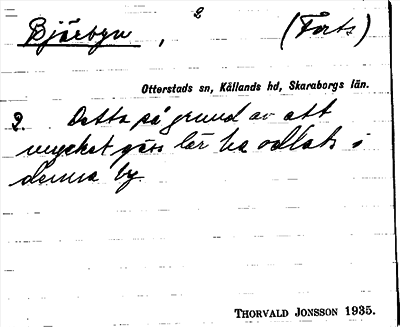 Björbyn, 2 (Forts)
Otterstads sn, Kållands hd, Skaraborgs län.
2. Detta på grund av att
mycket gäss lär ha odlats i
denna by
THORVALD JONSSON 1935.